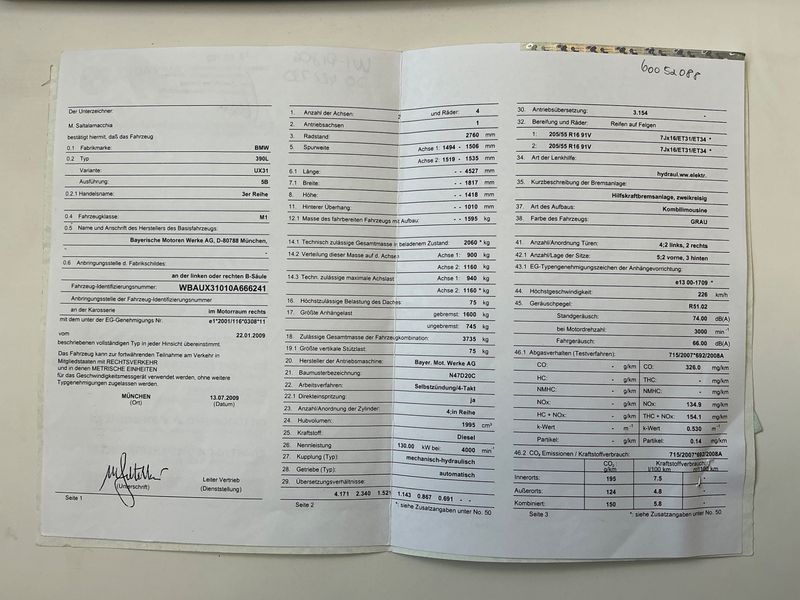 60052088
Der Unterzeichner:
M. Saltalamacchia
bestätigt hiermit, daß das Fahrzeug
0.1 Fabrikmarke: BMW
0.2 Typ 390L
Variante: UX31
Ausführung: 5B
0.2.1 Handelsname: 3er Reihe
0.4 Fahrzeugklasse: M1
0.5 Name und Anschrift des Herstellers des Basisfahrzeugs:
Bayerische Motoren Werke AG, D-80788 München,
-
0.6 Anbringungsstelle d. Fabrikschildes:
an der linken oder rechten B-Säule
Fahrzeug-Identifizierungsnummer: WBAUX31010A666241
Anbringungsstelle der Fahrzeug-Identifizierungsnummer
an der Karosserie im Motorraum rechts
mit dem unter der EG-Genehmigungs Nr. e1*2001/116*0308*11
vom 22.01.2009
beschriebenen vollständigen Typ in jeder Hinsicht übereinstimmt.
Das Fahrzeug kann zur fortwährenden Teilnahme am Verkehr in
Mitgliedstaaten mit RECHTSVERKEHR
und in denen METRISCHE EINHEITEN
für das Geschwindigkeitsmessgerät verwendet werden, ohne weitere
Typgenehmigungen zugelassen werden.
MÜNCHEN 13.07.2009
(Ort) (Datum)
(Unterschrift) Leiter Vertrieb
(Dienststellung)
Seite 1
1. Anzahl der Achsen: 2 und Räder: 4
2. Antriebsachsen 1
3. Radstand: 2760 mm
5. Spurweite Achse 1: 1494 - 1506 mm
Achse 2: 1519 - 1535 mm
6.1 Länge: - - 4527 mm
7.1 Breite: - - 1817 mm
8. Höhe: - - 1418 mm
11. Hinterer Überhang: - - 1010 mm
12.1 Masse des fahrbereiten Fahrzeugs mit Aufbau: - - 1595 kg
14.1 Technisch zulässige Gesamtmasse in beladenem Zustand: 2060 * kg
14.2 Verteilung dieser Masse auf d. Achsen Achse 1: 900 kg
Achse 2: 1160 kg
14.3 Techn. zulässige maximale Achslast Achse 1: 940 kg
Achse 2: 1160 * kg
16. Höchstzulässige Belastung des Daches: 75 kg
17. Größte Anhängelast gebremst: 1600 kg
ungebremst: 745 kg
18. Zulässige Gesamtmasse der Fahrzeugkombination: 3735 kg
19.1 Größte vertikale Stützlast: 75 kg
20. Hersteller der Antriebsmaschine: Bayer. Mot. Werke AG
21. Baumusterbezeichnung: N47D20C
22. Arbeitsverfahren: Selbstzündung/4-Takt
22.1 Direkteinspritzung: ja
23. Anzahl/Anordnung der Zylinder: 4;in Reihe
24. Hubvolumen: 1995 cm³
25. Kraftstoff: Diesel
26. Nennleistung 130.00 kW bei 4000 min⁻¹
27. Kupplung (Typ): mechanisch-hydraulisch
28. Getriebe (Typ): automatisch
29. Übersetzungsverhältnisse:
4.171 2.340 1.521 1.143 0.867 0.691 - -
Seite 2 *: siehe Zusatzangaben unter No. 50
30. Antriebsübersetzung: 3.154 -
32. Bereifung und Räder: Reifen auf Felgen
1: 205/55 R16 91V 7Jx16/ET31/ET34 *
2: 205/55 R16 91V 7Jx16/ET31/ET34 *
34. Art der Lenkhilfe:
hydraul.ww.elektr.
35. Kurzbeschreibung der Bremsanlage:
Hilfskraftbremsanlage, zweikreisig
37. Art des Aufbaus: Kombilimousine
38. Farbe des Fahrzeugs: GRAU
41. Anzahl/Anordnung Türen: 4;2 links, 2 rechts
42.1 Anzahl/Lage der Sitze: 5;2 vorne, 3 hinten
43.1 EG-Typengenehmigungszeichen der Anhängevorrichtung:
e13 00-1709 *
44. Höchstgeschwindigkeit: 226 km/h
45. Geräuschpegel: R51.02
Standgeräusch: 74.00 dB(A)
bei Motordrehzahl: 3000 min⁻¹
Fahrgeräusch: 66.00 dB(A)
46.1 Abgasverhalten (Testverfahren): 715/2007*692/2008A
CO: - g/km CO: 326.0 mg/km
HC: - g/km THC: - mg/km
NMHC: - g/km NMHC: - mg/km
NOx: - g/km NOx: 134.9 mg/km
HC + NOx: - g/km THC + NOx: 154.1 mg/km
k-Wert - m⁻¹ k-Wert 0.530 m⁻¹
Partikel: - g/km Partikel: 0.14 mg/km
46.2 CO₂ Emissionen / Kraftstoffverbrauch: 715/2007*692/2008A
CO₂ Kraftstoffverbrauch:
g/km l/100 km m³/100 km
Innerorts: 195 7.5 -
Außerorts: 124 4.8 -
Kombiniert: 150 5.8 -
Seite 3 *: siehe Zusatzangaben unter No. 50